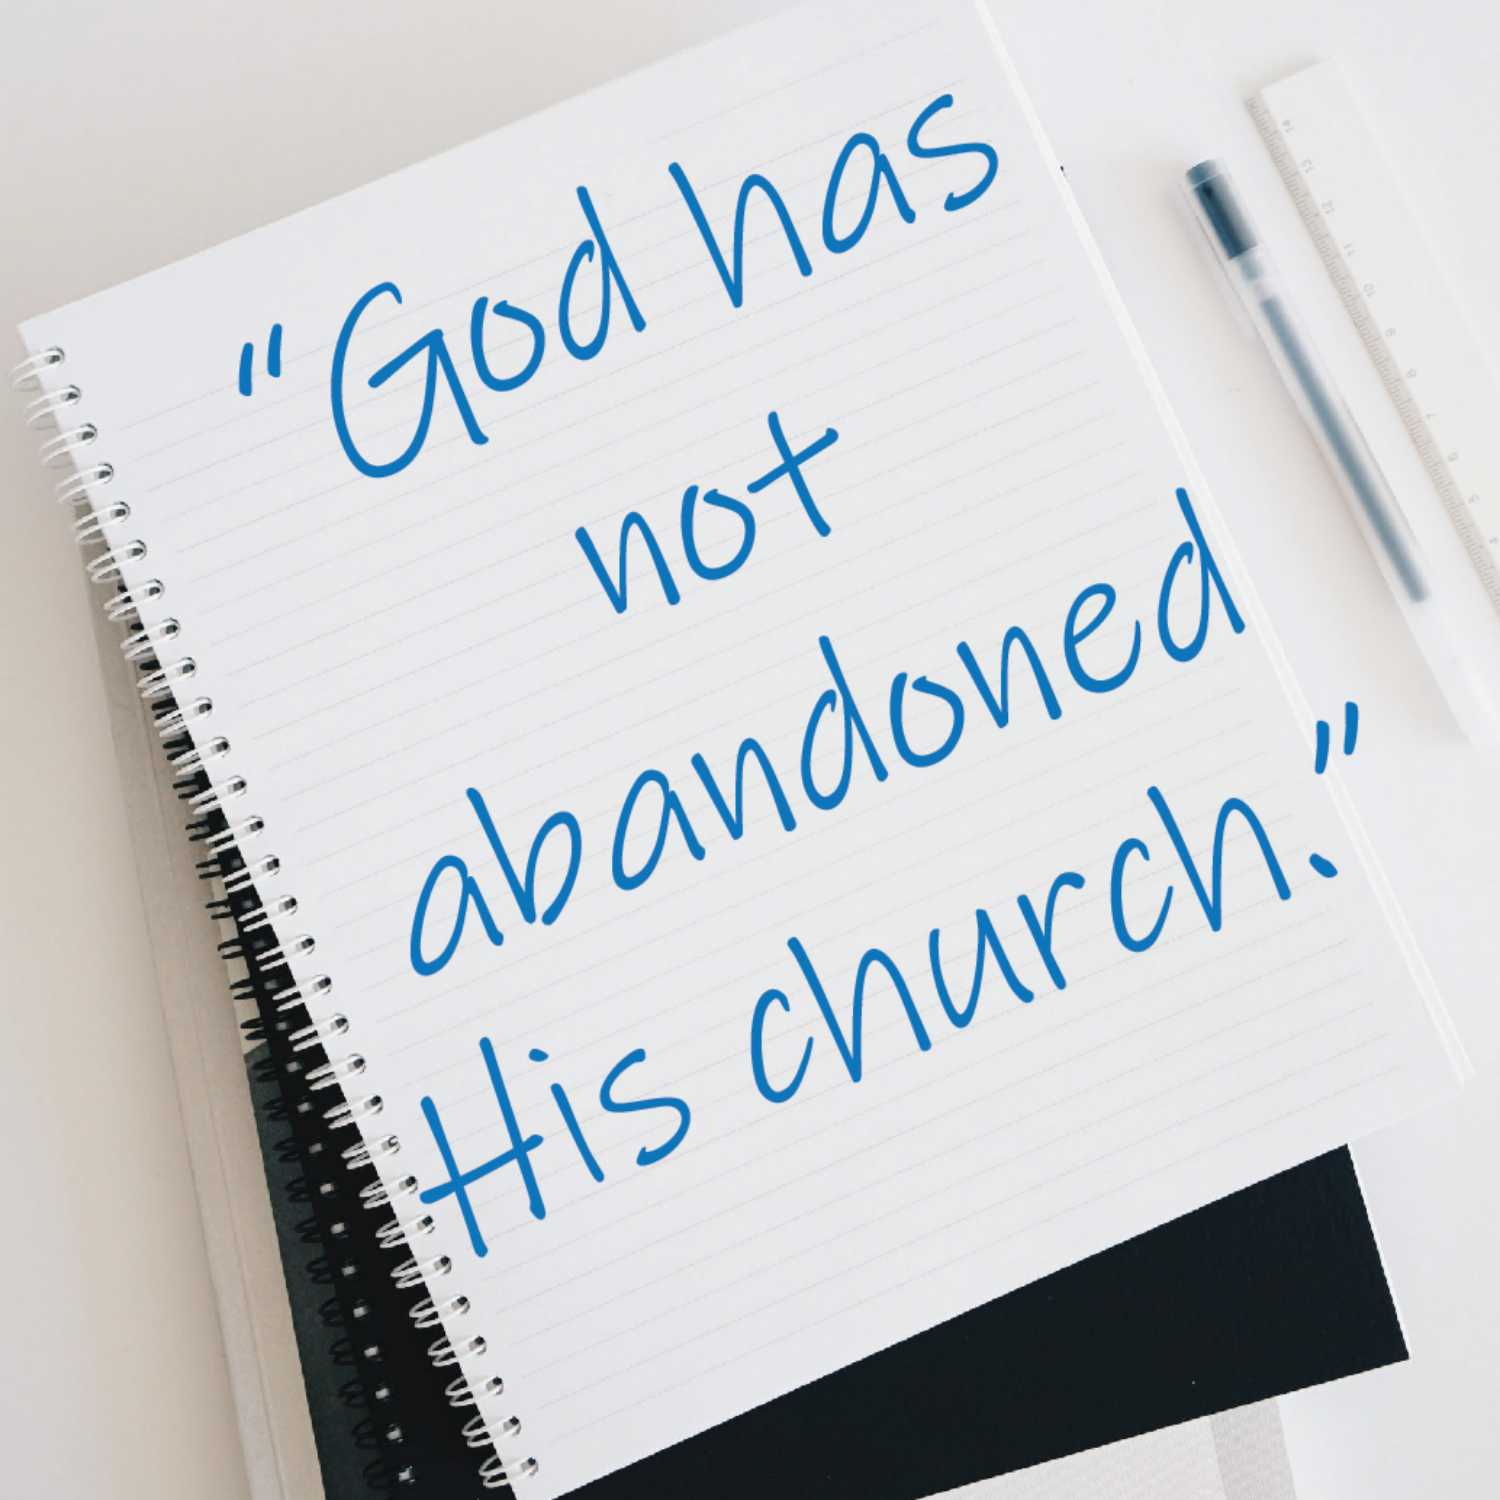 "God has
not
abandoned
His church."